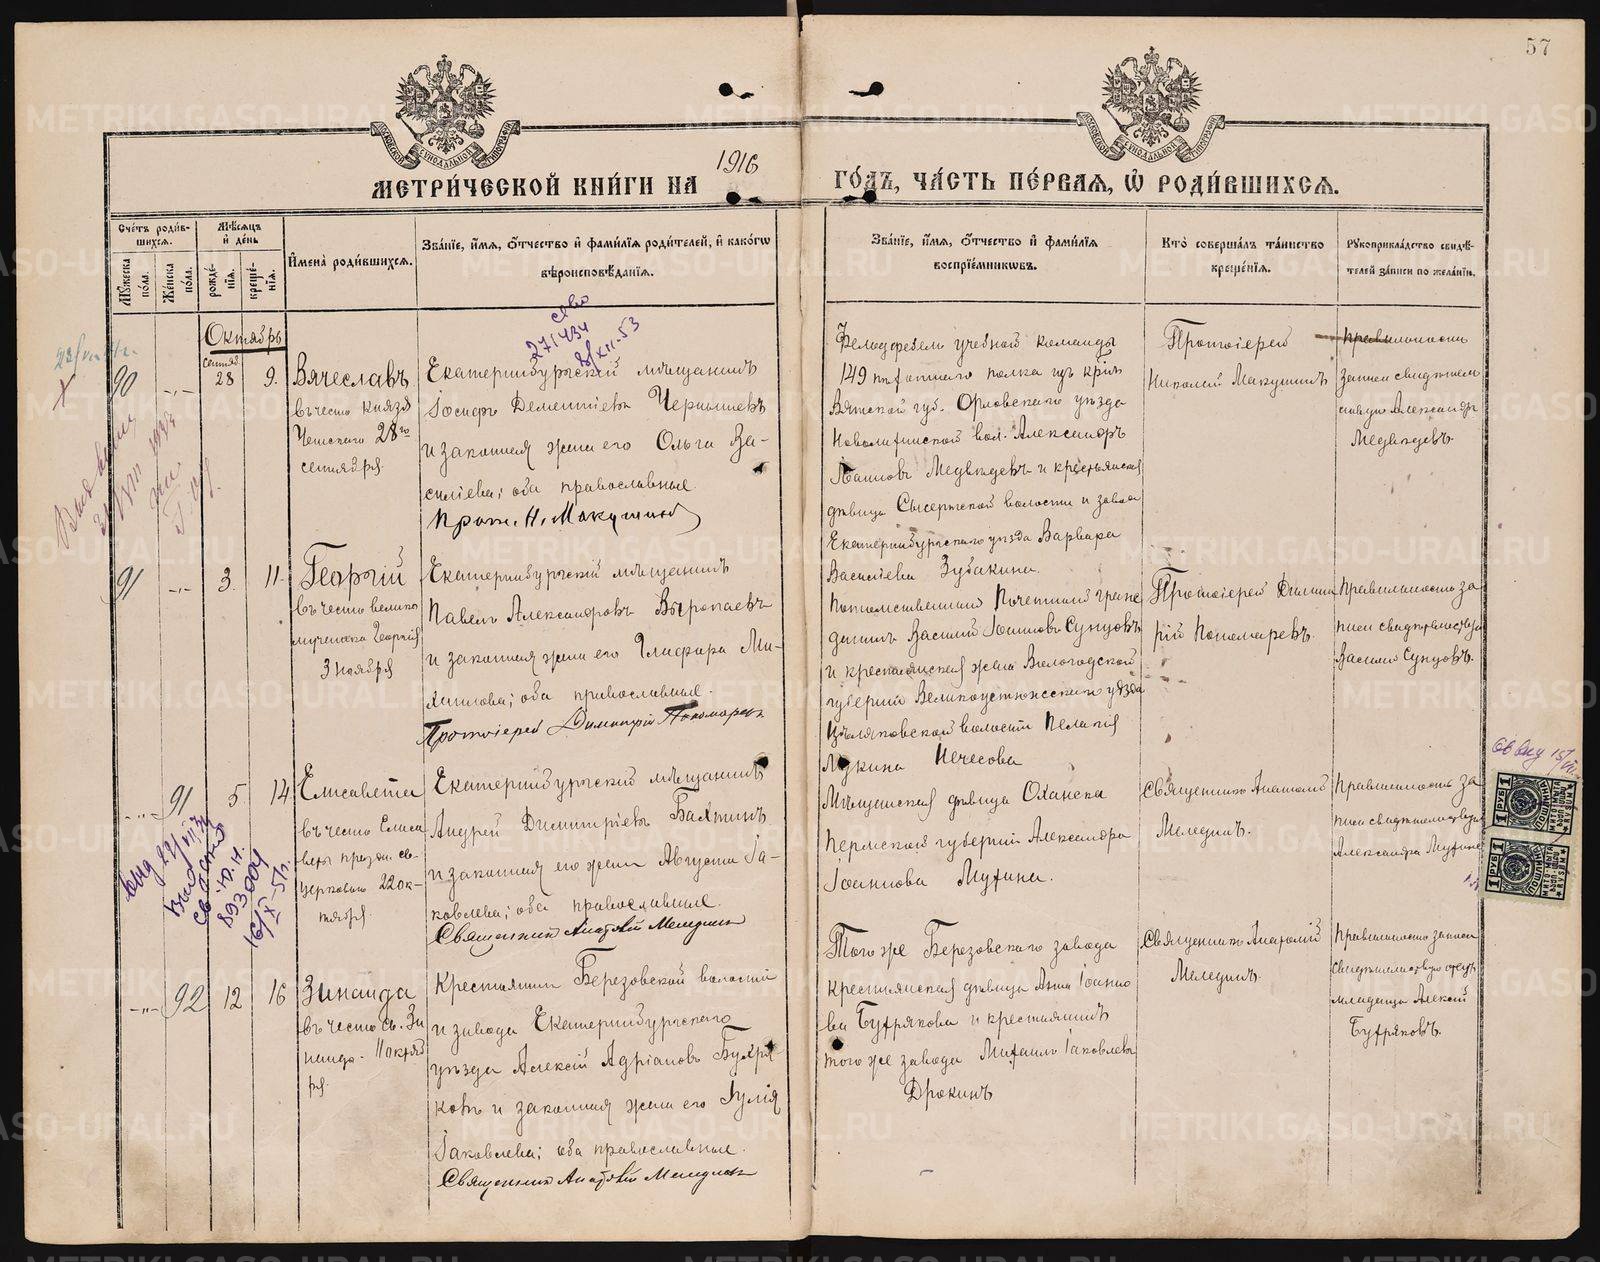 57
1916
МЕТРИ́ЧЕСКОЙ КНИ́ГИ НА
ГО́ДЪ, ЧА́СТЬ ПЕ́РВАЯ, Ѡ҆ РОДИ́ВШИХСЯ.
Сче́тъ роди́в-
шихся.
Мѣ́сяцъ
и҆ де́нь
Му́жеска по́ла.
Же́нска по́ла.
рожде́-
нїя.
креще́-
нїя.
И҆мена̀ роди́вшихся.
Зва́нїе, и҆́мя, ѻ҆́тчество и҆ фами́лїя роди́телей, и҆ како́гѡ
вѣроисповѣ́данїя.
Зва́нїе, и҆́мя, ѻ҆́тчество и҆ фами́лїя
воспрїе́мникѡвъ.
Кто̀ соверша́лъ та́инство
креще́нїя.
Рꙋкоприкла́дство свидѣ́-
телей за́писи по жела́нїю.
Октябрь
90
-„-
сентяб
28
9.
Вячеславъ
въ честь князя
Чешскаго 28го
сентября.
Екатеринбургскій мѣщанинъ
Іосифъ Дементіевъ Чернышевъ
и законная жена его Ольга Ва-
силіева; оба православные.
Прот. Н. Макушинъ
271434
8/XII-53
Фельдфебель учебной команды
149 пѣхотнаго полка изъ крѣп
Вятской губ. Орловскаго уѣзда
вол. Александръ
Іоанновъ Медвѣдевъ и крестьянская
дѣвица Сысертской волости и завода
Екатеринбургскаго уѣзда Варвара
Василіева Зубакина.
Протоіерей
Николай Макушинъ
Правильность
записи свидѣтель
ствую Александръ
Медвѣдевъ.
91
-„-
3.
11.
Георгій
въ честь велико
мученика Георгія
3 ноября
Екатеринбургскій мѣщанинъ
Павелъ Александровъ Выропаевъ
и законная жена его Глафира Ми-
хаилова; оба православные.
Протоіерей Димитрій Пономаревъ
Потомственный Почетный граж
данинъ Василій Іоанновъ Сунцовъ
и крестьянская жена Вологодской
губерніи Великоустюжскаго уѣзда
волости Пелагія
Лукина Нечесова
Протоіерей Димит
рій Пономаревъ.
Правильность за
писи свидѣтельствую
Василій Сунцовъ.
-„-
91
5
14
Елисавета
въ честь Елиса
веты празди. св.
церковью 22 ок-
тября.
Екатеринбургскій мѣщанинъ
Андрей Димитріевъ Бахтинъ
и законная его жена Августа Іа-
ковлева; оба православные.
Священникъ Анатолій Меледин
Мѣщанская дѣвица Оханска
Пермской губерніи Александра
Іоаннова Мухина.
Священникъ Анатолій
Мелединъ.
Правильность за
писи свидѣтельствую
Александра Мухина
1 РУБ 1
1 РУБ 1
893004
16/X-51г.
-„-
92
12
16
Зинаида
въ честь св. Зи
наиды 11 октяб
ря.
Крестьянинъ Березовской волости
и завода Екатеринбургскаго
уѣзда Алексій Адріановъ Бухря
ковъ и законная жена его Іулія
Іаковлева; оба православные.
Священникъ Анатолій Меледин
Того же Березовскаго завода
крестьянская дѣвица Анна Іоанно
ва Бухрякова и крестьянинъ
того же завода Михаилъ Іаковлевъ
Дрокинъ
Священникъ Анатолій
Мелединъ.
Правильность записи
свидѣтельствую отецъ
младенца Алексій
Бухряковъ.
METRIKI.GASO-URAL.RU